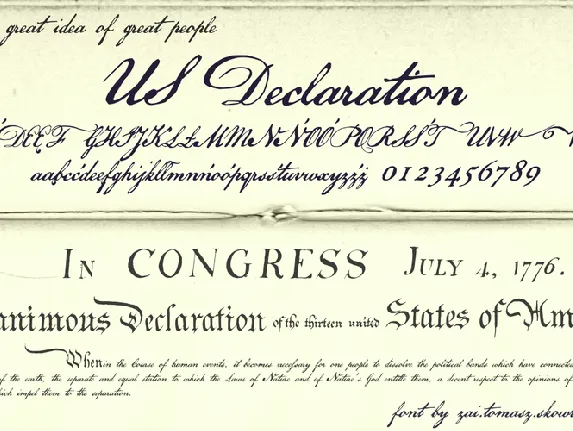 great idea of great people
US Declaration
DEEF GHIJKLŁMMNŃOÓPQRSŚT UVW
aąbcćdeęfghijklłmnńoópqrsśtuvwxyzźż 0123456789
IN CONGRESS JULY 4, 1776.
animous Declaration of the thirteen united States of Am
When in the Course of human events, it becomes necessary for one people to dissolve the political bands which have connected
of the earth, the separate and equal station to which the Laws of Nature and of Nature's God entitle them, a decent respect to the opinions of
which impel them to the separation.
font by zai.tomasz.skowr